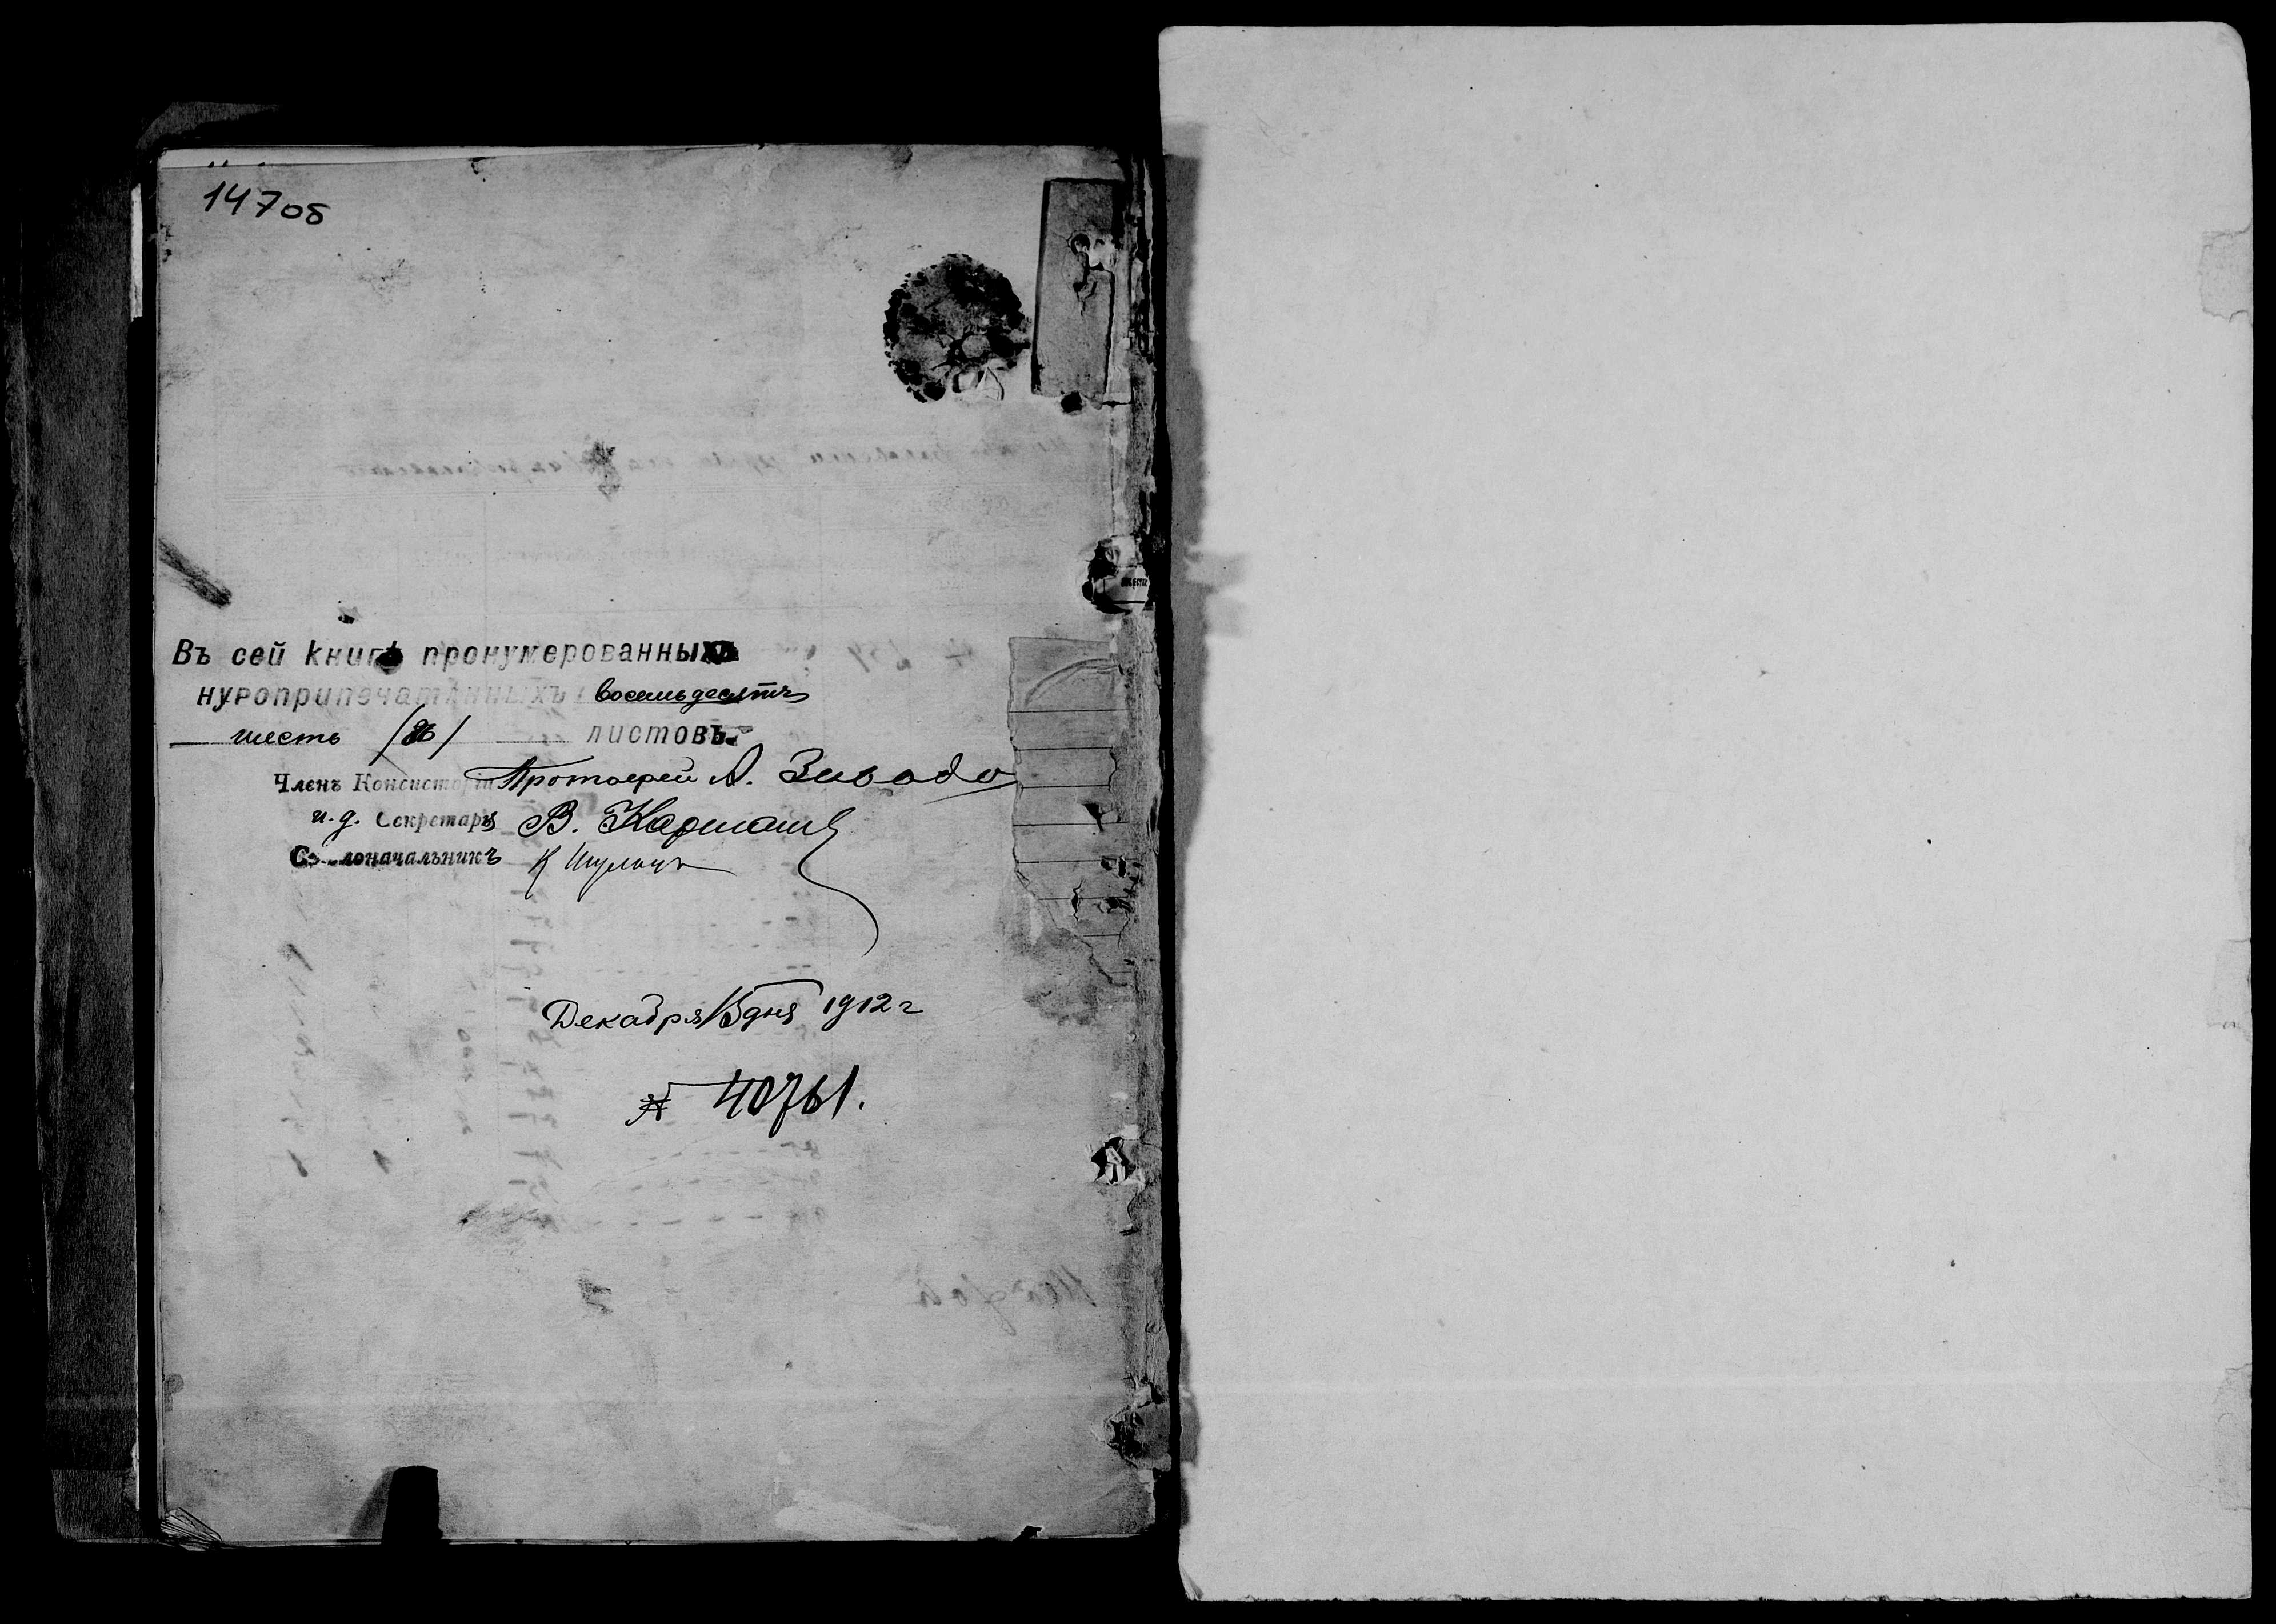 147 об
Въ сей книгѣ пронумерованныхъ
шнуроприпечатанныхъ восемьдесятъ
шесть /86/ листовъ.
Членъ Консисторіи Протоіерей А.
и. д. Секретаря В.
Столоначальникъ К
Декабря 15 дня 1912 г
№ 40761.